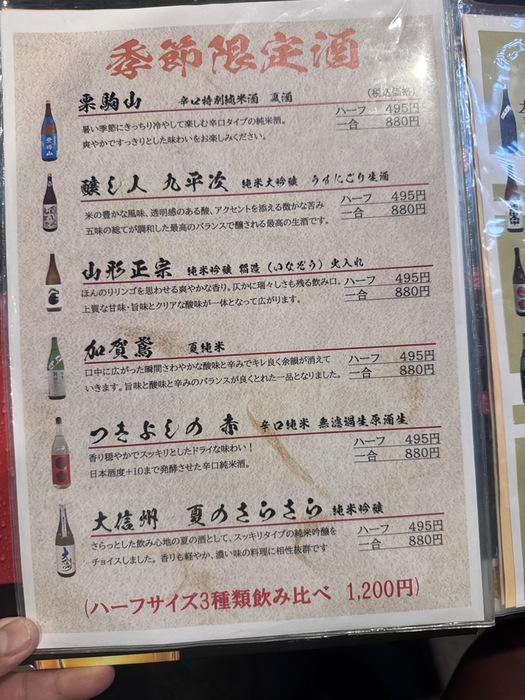 季節限定酒
(税込価格)
栗駒山 辛口特別純米酒 夏酒
ハーフ 495円
一合 880円
暑い季節にきっちり冷やして楽しむ辛口タイプの純米酒。
爽やかですっきりとした味わいをお楽しみください。
醸し人 九平次 純米大吟醸 うすにごり生酒
ハーフ 495円
一合 880円
米の豊かな風味、透明感のある酸、アクセントを添える微かな苦み
五味の総てが調和した最高のバランスで醸される最高の生酒です。
山形正宗 純米吟醸 稲造(いなぞう)火入れ
ハーフ 495円
一合 880円
ほんのりリンゴを思わせる爽やかな香り。仄かに瑞々しさも残る飲み口。
上質な甘味・旨味とクリアな酸味が一体となって広がります。
加賀鳶 夏純米
ハーフ 495円
一合 880円
口中に広がった瞬間さわやかな酸味と辛みでキレ良く余韻が消えて
いきます。旨味と酸味と辛みのバランスが良くとれた一品となりました。
つきよしの 赤 辛口純米 無濾過生原酒生
ハーフ 495円
一合 880円
香り穏やかでスッキリとしたドライな味わい！
日本酒度+10まで発酵させた辛口純米酒。
大信州 夏のさらさら 純米吟醸
ハーフ 495円
一合 880円
さらっとした飲み心地の夏の酒として、スッキリタイプの純米吟醸を
チョイスしました。香りも軽やか、濃い味の料理に相性抜群です
(ハーフサイズ3種類飲み比べ 1,200円)